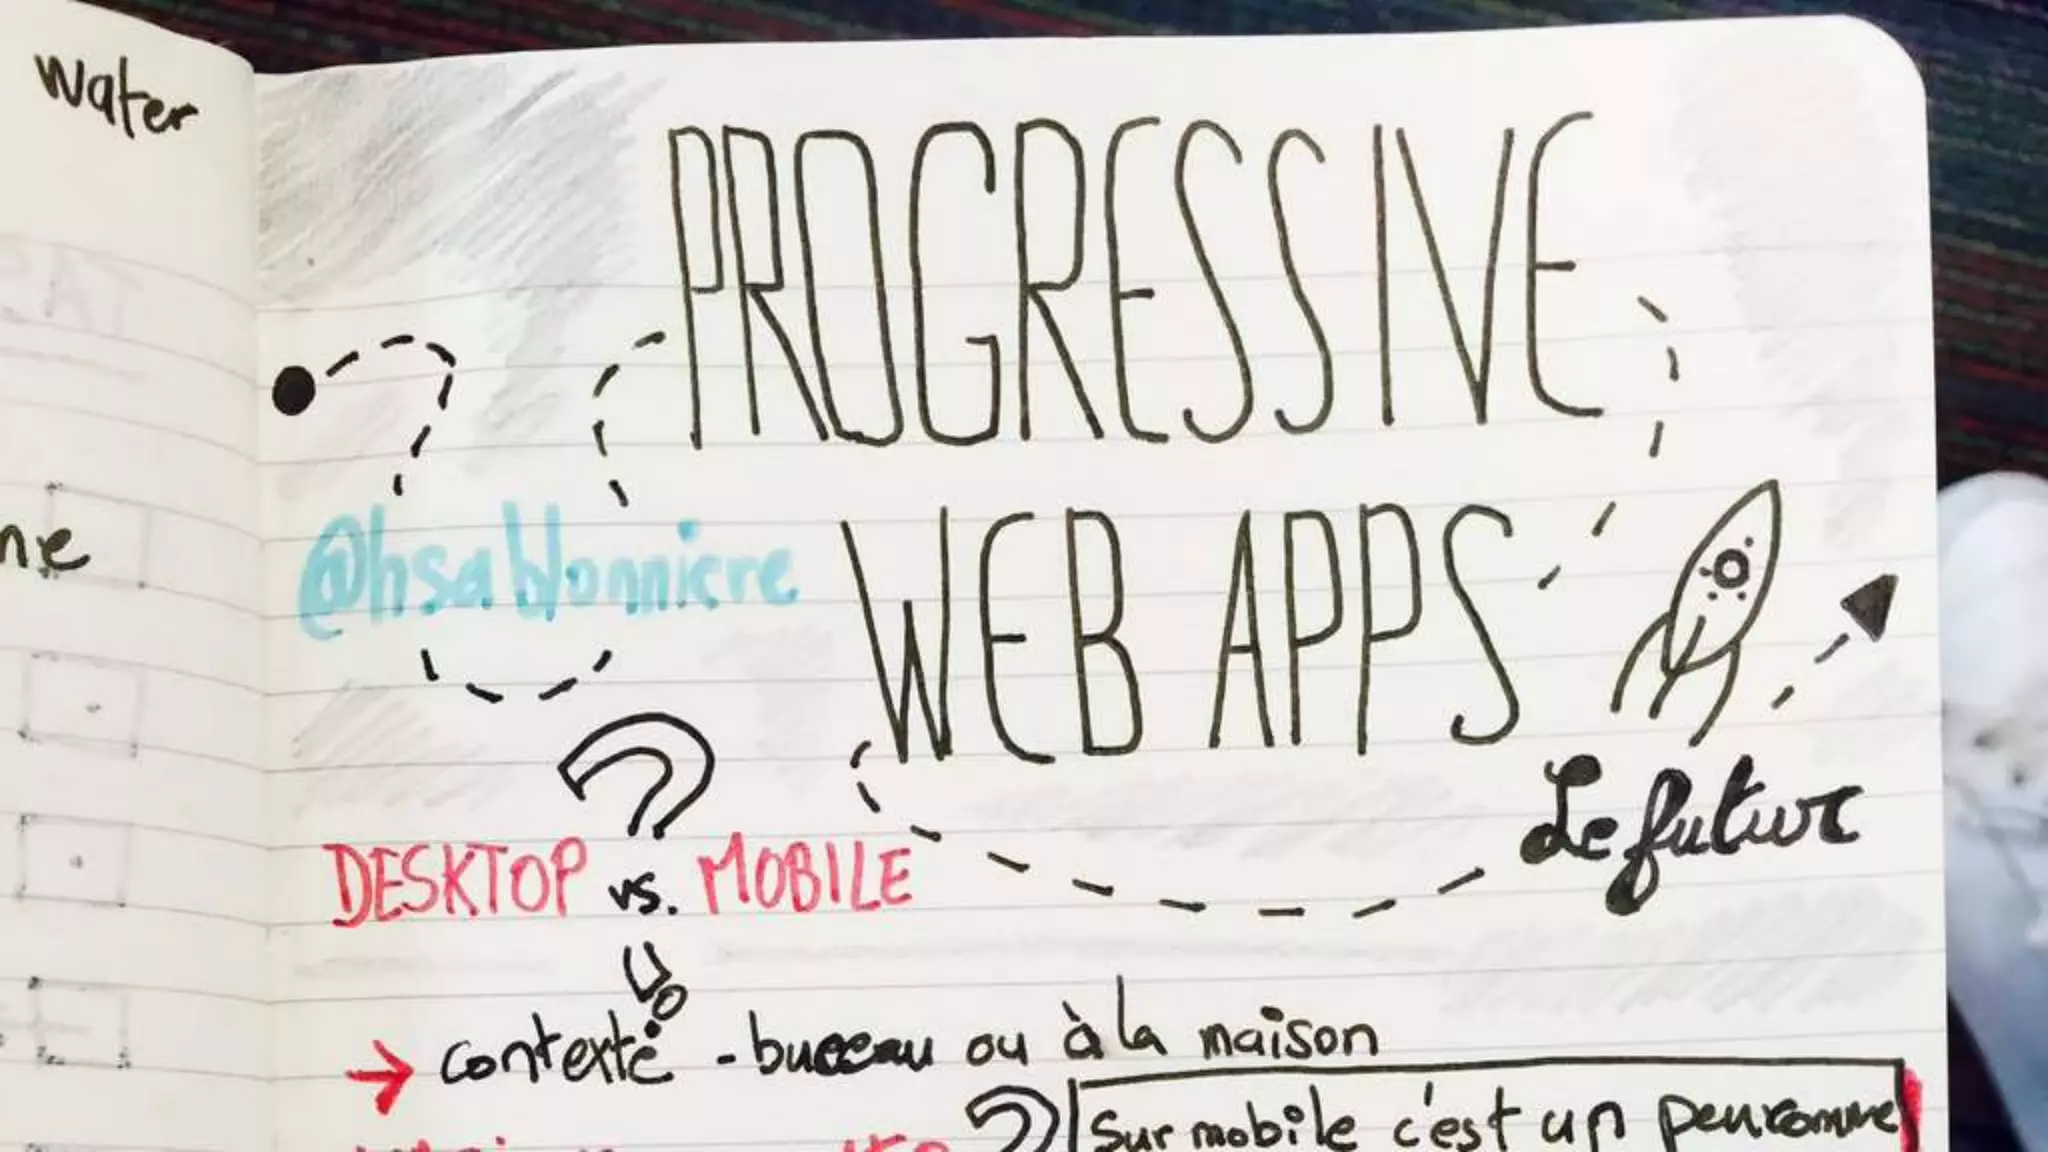 water
ne
PROGRESSIVE
@hsablonniere
WEB APPS
Le futur
?
DESKTOP vs. MOBILE
→ contexte - bureau ou à la maison
? Sur mobile c'est un peu comme